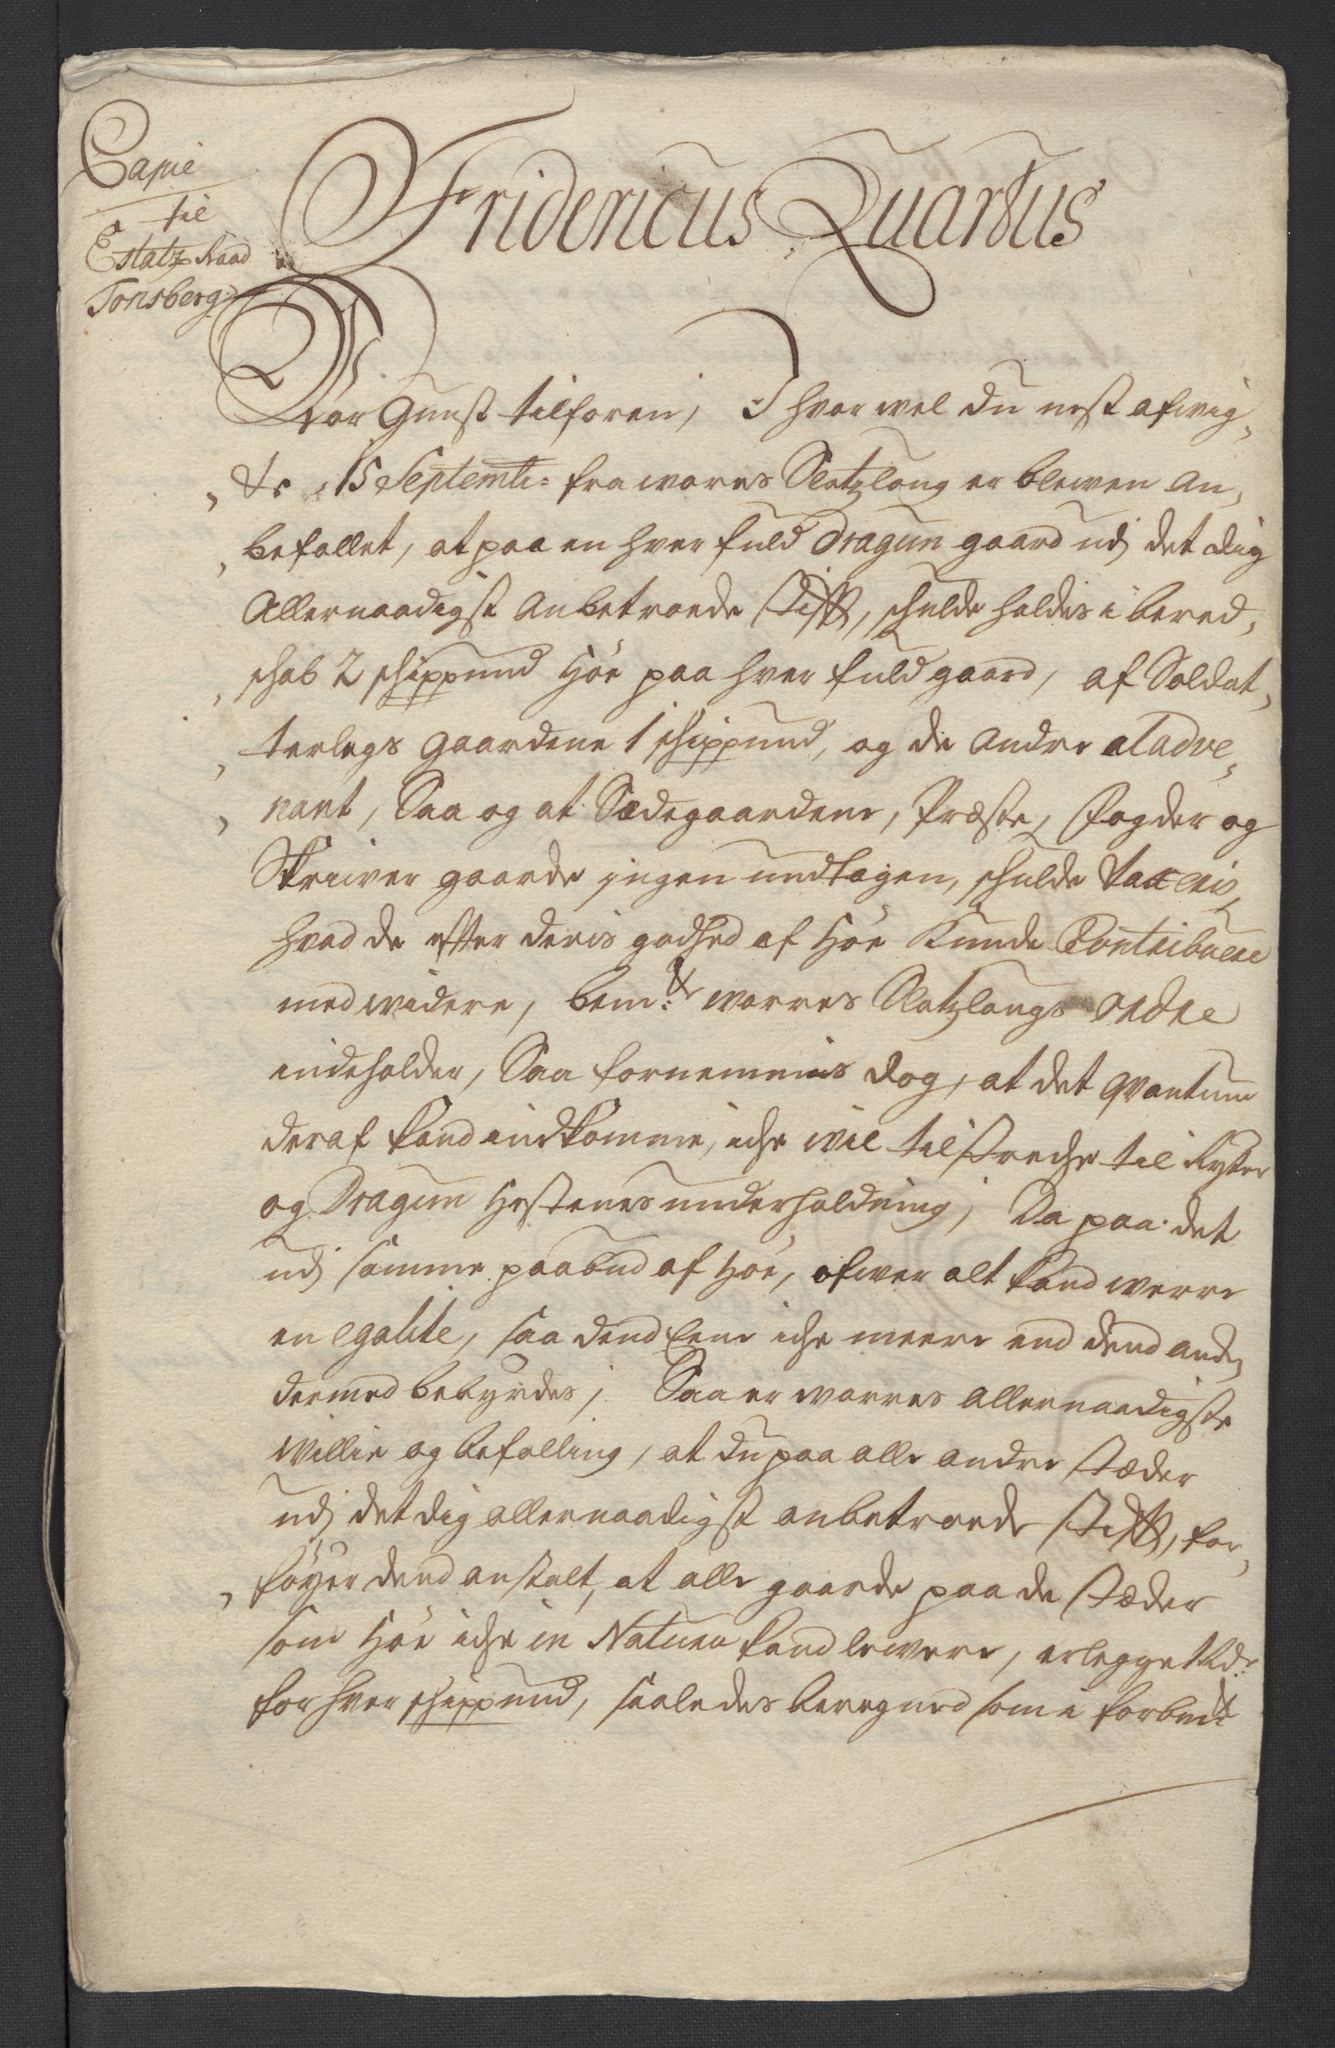 Copie
til
Estatz Raad
Tonsberg
Fridericus Quartus
Vor Gunst tilforen, I hvorwel du nest afwig,
,te 15 Septembr: fra wores Slotzlaug er blewen An,
,befallet, at paa en hver fuld Dragun gaard udj det dig
Allernaadigst Anbetroede Stifft, schulde holdes i bered,
,schab 2 schippund Høe paa hver fuld gaard, af Soldat,
,terlegs gaardene 1 schippund, og de Andre aladve,
,nant, Saa og at Sædegaardene, Præste, Fogder og
Skriwer gaarde jngen undtagen, schulde taxeris,
hvad de efter deris godhed af Høe kunde Contribuere
med widere, bem:te worres Slotzlaugs Ordre
indeholder, Saa fornemmis dog, at det qvantum
deraf kand indkomme, iche wil tilstreche til Rytter
og Dragun Hestenes underholdning, Da paa det
udj samme paabud af Høe, ofwer alt kand werre
en egalité, saa dend Eene iche meere end dend and,
dermed bebyrdes, Saa er worres allernaadigste
Willie og befalling, at du paa alle andre stæder
udj det dig allernaadigst anbetroede Stifft, for,
,føyer dend anstalt, at alle gaarde paa de stæder
som Høe iche in Natura kand lewere, erlegge 1 Rdr
for hver schippund, saaledes beregned som i forbem:te